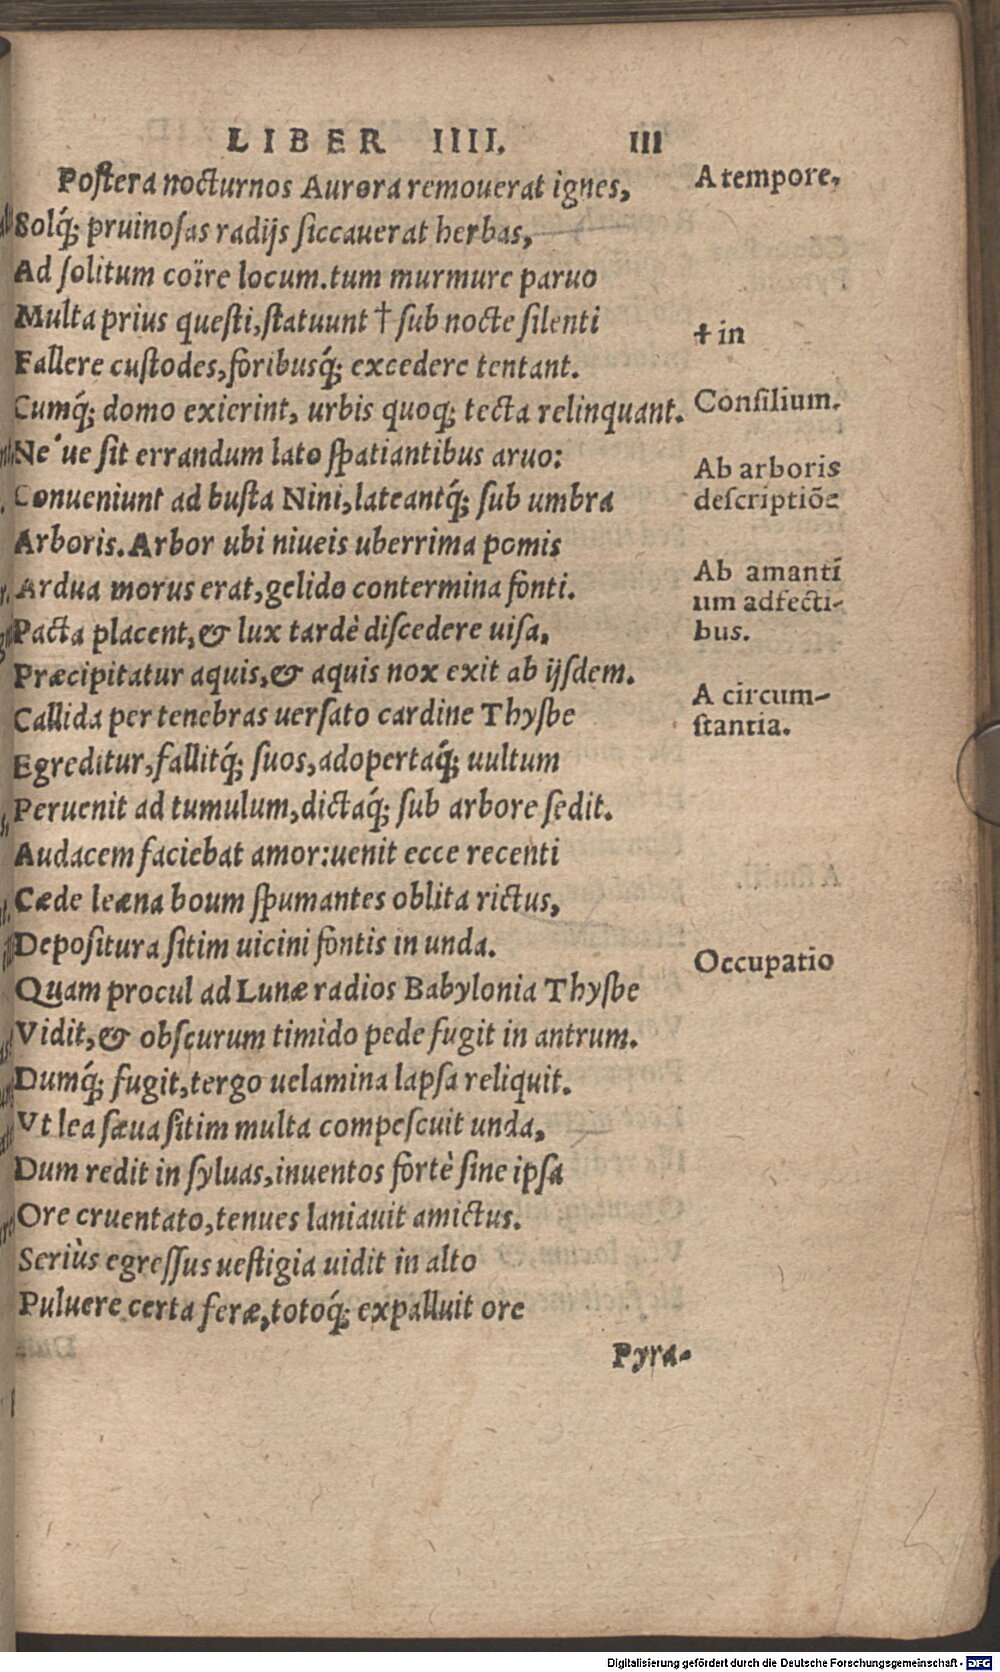 LIBER IIII. III
Postera nocturnos Aurora remouerat ignes,
A tempore,
Solq́; pruinosas radijs siccauerat herbas,
Ad solitum coïre locum.tum murmure paruo
Multa prius questi,statuunt † sub nocte silenti
† in
Fallere custodes,foribusq́; excedere tentant.
Cumq́; domo exierint, urbis quoq; tecta relinquant.
Consilium.
Ne´ue sit errandum lato spatiantibus aruo:
Ab arboris
Conueniunt ad busta Nini,lateantq́; sub umbra
descriptiõe
Arboris.Arbor ubi niueis uberrima pomis
Ardua morus erat,gelido contermina fonti.
Ab amantĩ
um adfecti-
bus.
Pacta placent,& lux tardè discedere uisa,
Præcipitatur aquis,& aquis nox exit ab ijsdem.
A circum-
stantia.
Callida per tenebras uersato cardine Thysbe
Egreditur,fallitq́; suos,adopertaq́; uultum
Peruenit ad tumulum,dictaq́; sub arbore sedit.
Audacem faciebat amor:uenit ecce recenti
Cæde leæna boum spumantes oblita rictus,
Depositura sitim uicini fontis in unda.
Occupatio
Quam procul ad Lunæ radios Babylonia Thysbe
Vidit,& obscurum timido pede fugit in antrum.
Dumq́; fugit,tergo uelamina lapsa reliquit.
Vt lea sæua sitim multa compescuit unda,
Dum redit in syluas,inuentos fortè sine ipsa
Ore cruentato,tenues laniauit amictus.
Seriùs egressus uestigia uidit in alto
Puluere certa feræ,totoq́; expalluit ore
Pyra-
Digitalisierung gefördert durch die Deutsche Forschungsgemeinschaft - DFG